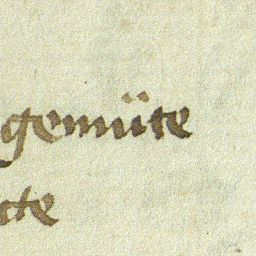 gemüte
cte